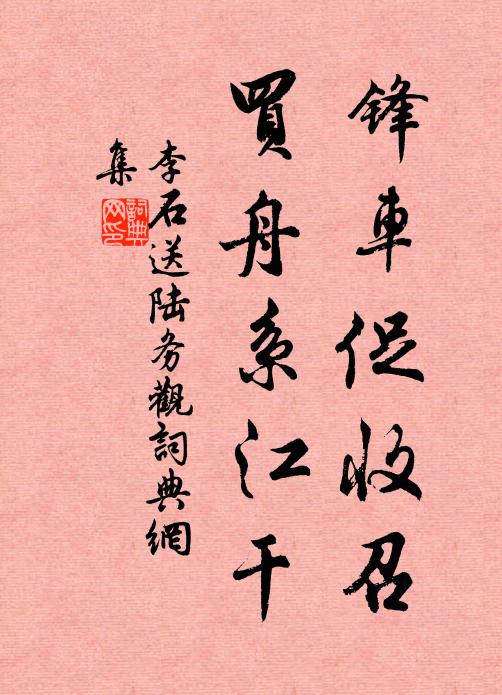 鋒車促收召
買舟系江干
李石送陸务觀詞典網
集
詞典網印